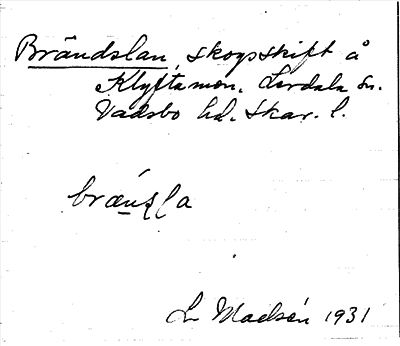 Brändslan, skogsskift å
Klyftamon, Lerdala sn.
Vadsbo hd. Skar. l.
brænsla
L Maelsén 1931